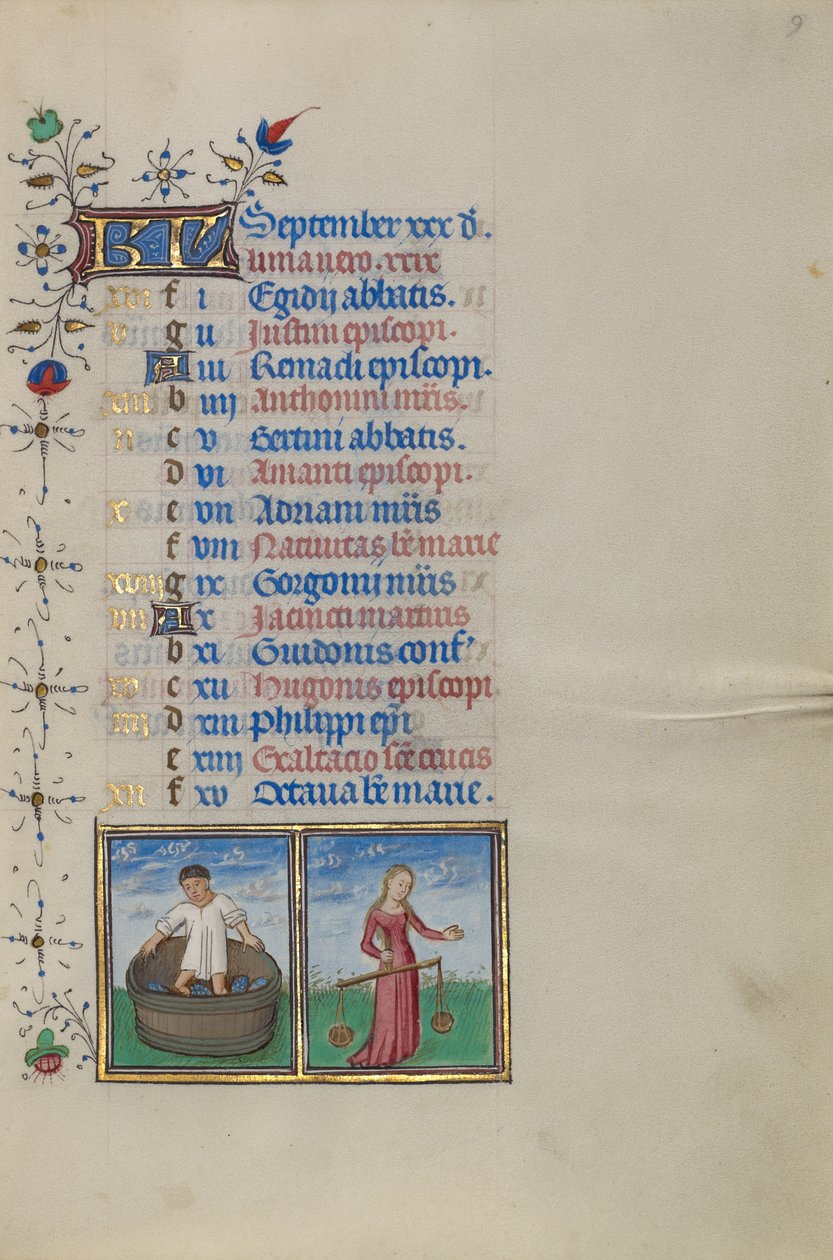 9
KL September xxx d'.
Luna vero. xxix
xvi f i Egidij abbatis.
v g ii Justini episcopi.
A iii Remacli episcopi.
xiii b iiij Anthonini mr̄is.
ii c v Bertini abbatis.
d vi Amanti episcopi.
x e vii Adriani mr̄is
f viii Natiuitas bē marie
xviii g ix Gorgonij mr̄is
vii A x Jacincti martiris
b xi Guidonis conf'
xv c xii Hugonis episcopi.
iiij d xiii Philippi ep̄i
e xiiij Exaltacio scē crucis
xii f xv Octaua bē marie.